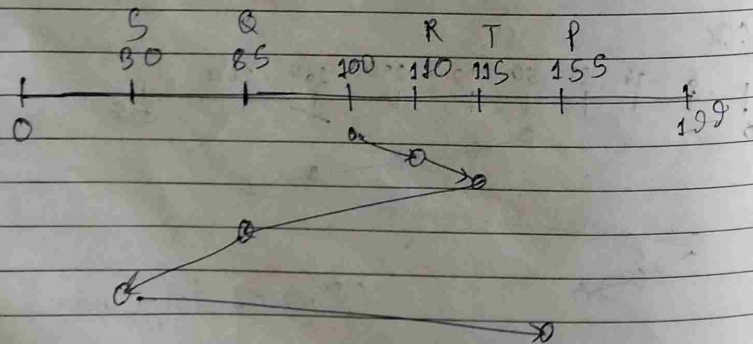 S Q R T P
30 85 100 110 115 155
0 199